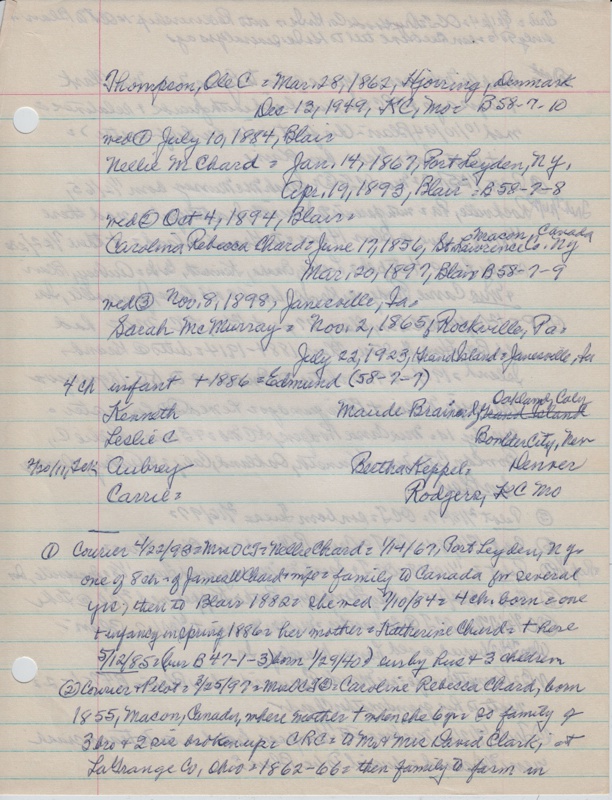 Thompson, Ole C = Mar. 28, 1862, Hjorring, Denmark
Dec 13, 1949, KC, Mo = B 58-7-10
med ① July 10, 1884, Blair
Nellie M Chard = Jan. 14, 1867, Port Leyden, Ny,
Apr. 19, 1893, Blair = B 58-7-8
med ② Oct 4, 1894, Blair =
Macon, Canada
Carolina Rebecca Chard = June 17, 1856, St Lawrence Co, Ny
Mar. 20, 1897, Blair B 58-7-9
med ③ Nov. 8, 1898, Janesville, Ia.
Sarah McMurray = Nov. 2, 1865, Rockville, Pa.
July 22, 1923, Grand Island = Janesville, Ia
4 ch infant + 1886 = Edmund (58-7-7)
Oakland, Calif
Kenneth Maude Brainard, Grand Island
Leslie C Boulder City, Nev
2/20/11, Aubrey Bertha Keppel = Denver
Carrie = Rodgers, KC Mo
① Courier 4/22/93 = Mrs OCT = Nellie Chard = 1/14/67, Port Leyden, Ny =
one of 8 ch of James W Chard + wife = family to Canada for several
yrs, then to Blair 1882 = she med 7/10/84 = 4 ch. born = one
+ infancy in spring 1886 = her mother = Katherine Chard = + here
5/12/85 = (bur B 47-1-3) born 1/29/40) surv by hus + 3 children
② Courier + Pilot = 3/25/97 = Mrs OCT ② = Caroline Rebecca Chard, born
1855, Macon, Canada, where mother + when she 6 yr so family of
3 bro + 2 sis broken up = CRC = to Mr + Mrs David Clark, at
LaGrange Co, Ohio = 1862-66 = then family to farm in